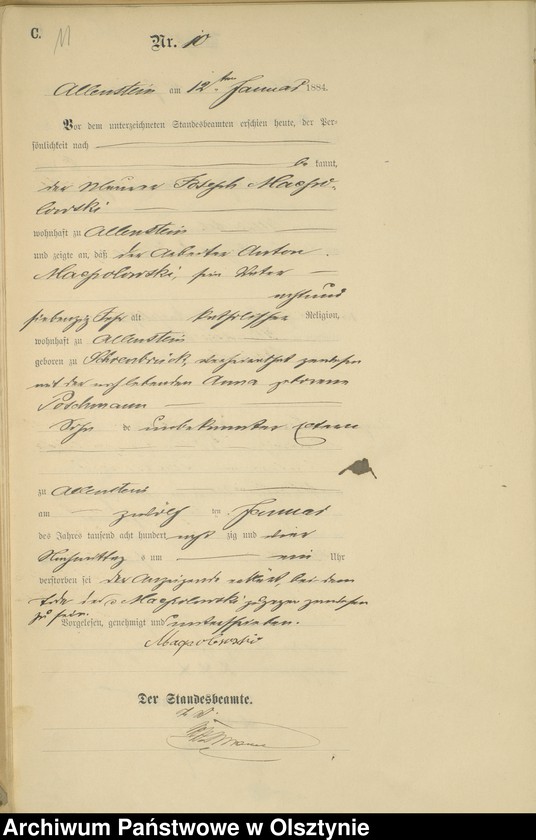 C.
11
Nr. 10
Allenstein am 12ten Januar 1884.
Vor dem unterzeichneten Standesbeamten erschien heute, der Per-
sönlichkeit nach
be kannt,
der Maurer Joseph Macpo-
lowski
wohnhaft zu Allenstein
und zeigte an, daß der Arbeiter Anton
Macpolowski, sein Vater
achtund
siebenzig Jahr alt katholischer Religion,
wohnhaft zu Allenstein
geboren zu Schoenbrück, verheirathet gewesen
mit der noch lebenden Anna geborene
Poschmann
Sohn de unbekannter Eltern
zu Allenstein
am zwölf ten Januar
des Jahres tausend acht hundert acht zig und vier
Nachmittag s um ein Uhr
verstorben sei der Anzeigende erklärt, bei dem
Tode des Macpolowski zugegen gewesen
zu sein.
Vorgelesen, genehmigt und unterschrieben.
Macpolowski
Der Standesbeamte.
Archiwum Państwowe w Olsztynie